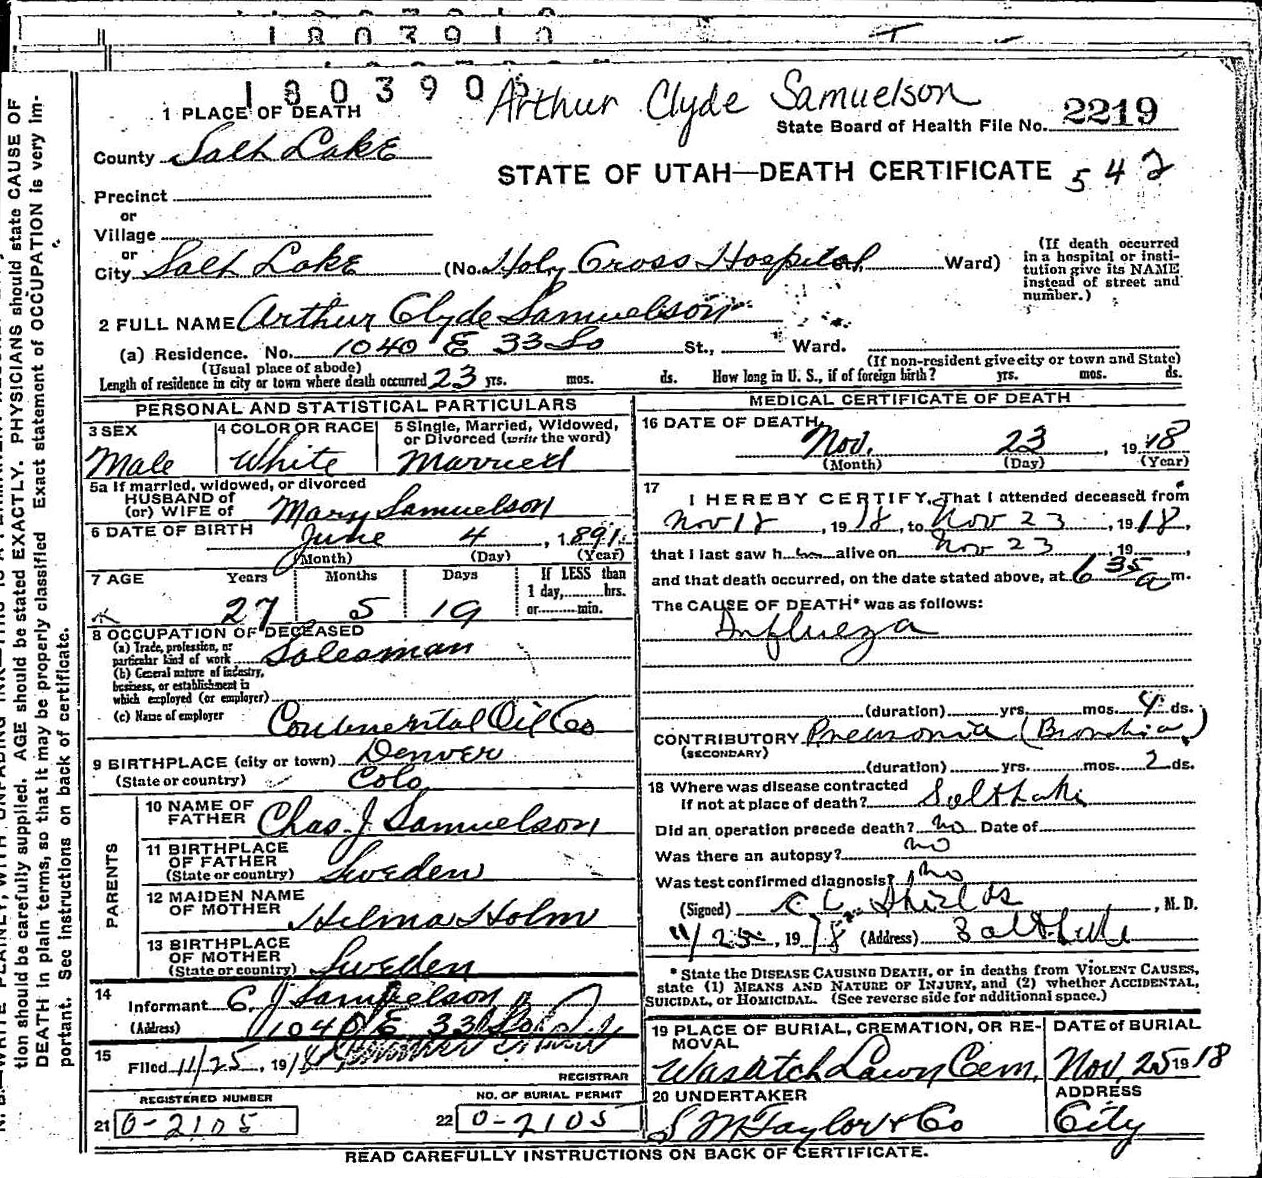 1803910
180390
Arthur Clyde Samuelson
1 PLACE OF DEATH
State Board of Health File No. 2219
County Salt Lake
STATE OF UTAH—DEATH CERTIFICATE 542
Precinct
or
Village
or
City Salt Lake (No. Holy Cross Hospital St., Ward)
(If death occurred in a hospital or insti-
tution give its NAME
instead of street and
number.)
2 FULL NAME Arthur Clyde Samuelson
(a) Residence. No. 1040 E 33 So St., Ward.
(Usual place of abode) (If non-resident give city or town and State)
Length of residence in city or town where death occurred 23 yrs. mos. ds. How long in U. S., if of foreign birth? yrs. mos. ds.
PERSONAL AND STATISTICAL PARTICULARS
3 SEX 4 COLOR OR RACE 5 Single, Married, Widowed,
or Divorced (write the word)
Male White Married
5a If married, widowed, or divorced
HUSBAND of
(or) WIFE of Mary Samuelson
6 DATE OF BIRTH June 4, 1891
(Month) (Day) (Year)
7 AGE Years Months Days If LESS than
1 day, hrs.
27 5 19 or min.
8 OCCUPATION OF DECEASED
(a) Trade, profession, or
particular kind of work Salesman
(b) General nature of industry,
business, or establishment in
which employed (or employer)
(c) Name of employer Continental Oil Co
9 BIRTHPLACE (city or town) Denver
(State or country) Colo
PARENTS
10 NAME OF
FATHER Chas. J Samuelson
11 BIRTHPLACE
OF FATHER
(State or country) Sweden
12 MAIDEN NAME
OF MOTHER Hilma Holm
13 BIRTHPLACE
OF MOTHER
(State or country) Sweden
14
Informant C. J Samuelson
(Address) 1040 E 33 So
15
Filed 11/25, 1918
REGISTRAR
REGISTERED NUMBER NO. OF BURIAL PERMIT
21 0-2105 22 0-2105
MEDICAL CERTIFICATE OF DEATH
16 DATE OF DEATH Nov. 23, 1918
(Month) (Day) (Year)
17
I HEREBY CERTIFY, That I attended deceased from
Nov 18, 1918, to Nov 23, 1918,
that I last saw h im alive on Nov 23, 19,
and that death occurred, on the date stated above, at 6 35 a m.
The CAUSE OF DEATH* was as follows:
Influeza
(duration) yrs. mos. 4 ds.
CONTRIBUTORY Pneumonia (Bronchial)
(SECONDARY)
(duration) yrs. mos. 2 ds.
18 Where was disease contracted
if not at place of death? Salt Lake
Did an operation precede death? no Date of
Was there an autopsy? no
Was test confirmed diagnosis? no
(Signed) C L Shields, M. D.
11/25, 1918 (Address) Salt Lake
* State the DISEASE CAUSING DEATH, or in deaths from VIOLENT CAUSES,
state (1) MEANS AND NATURE OF INJURY, and (2) whether ACCIDENTAL,
SUICIDAL, or HOMICIDAL. (See reverse side for additional space.)
19 PLACE OF BURIAL, CREMATION, OR RE-
MOVAL DATE of BURIAL
Wasatch Lawn Cem. Nov. 25 1918
20 UNDERTAKER ADDRESS
S M Taylor & Co City
READ CAREFULLY INSTRUCTIONS ON BACK OF CERTIFICATE.
N. B.—WRITE PLAINLY, WITH UNFADING INK—THIS IS A PERMANENT
tion should be carefully supplied. AGE should be stated EXACTLY. PHYSICIANS should state CAUSE OF
DEATH in plain terms, so that it may be properly classified. Exact statement of OCCUPATION is very im-
portant. See instructions on back of certificate.